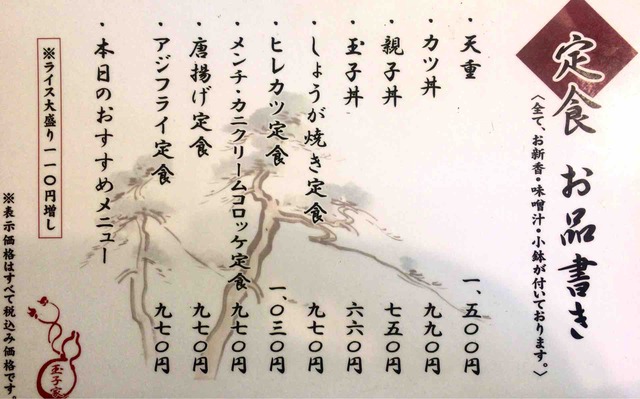 定食 お品書き
〈全て、お新香・味噌汁・小鉢が付いております。〉
・天重 一、五〇〇円
・カツ丼 九九〇円
・親子丼 七五〇円
・玉子丼 六六〇円
・しょうが焼き定食 九七〇円
・ヒレカツ定食 一、〇三〇円
・メンチ・カニクリームコロッケ定食 九七〇円
・唐揚げ定食 九七〇円
・アジフライ定食 九七〇円
・本日のおすすめメニュー
※ライス大盛り一一〇円増し
※表示価格はすべて税込み価格です。
玉子家